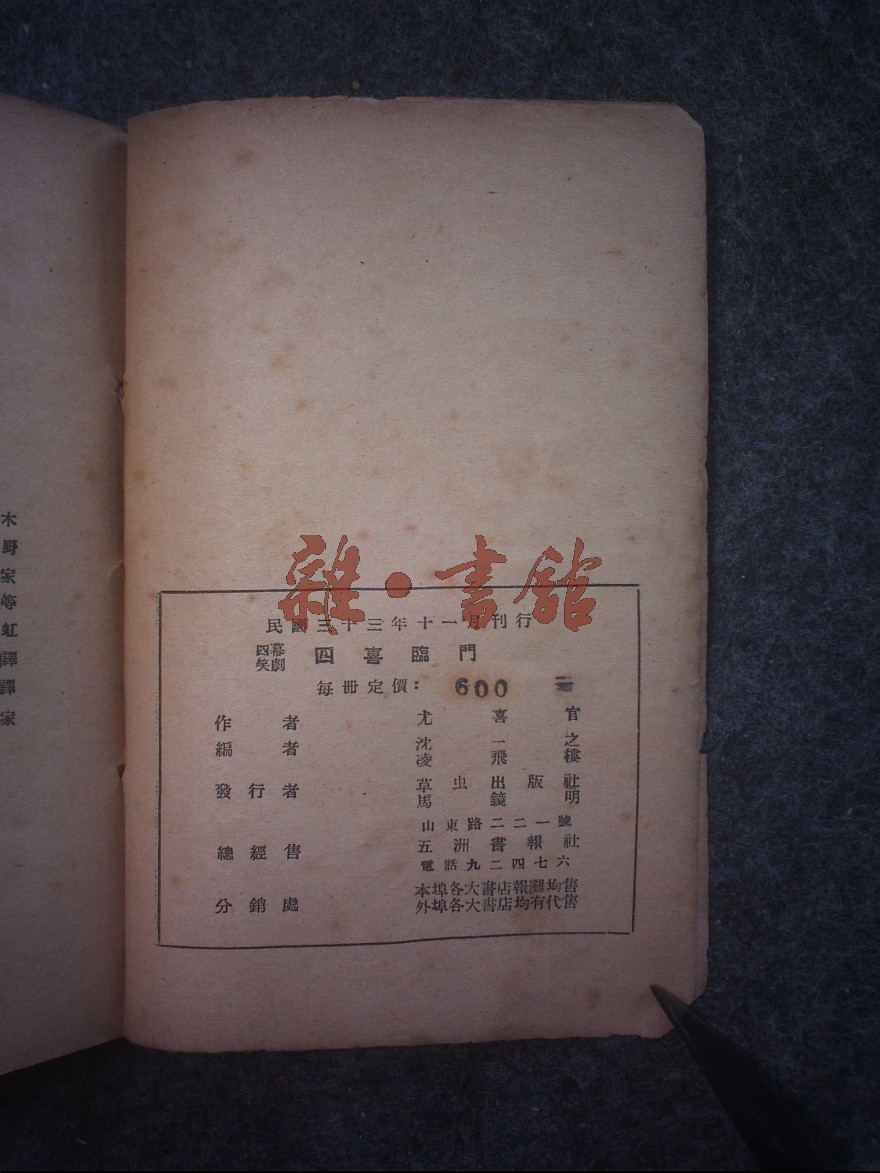 木野家等虹譯譯家
雜·書館
民國三十三年十一月刊行
四幕笑劇 四喜臨門
每冊定價：600
作者 尤喜官
編者 沈一之
凌飛樓
發行者 草虫出版社
馬鏡明
山東路二二一號
總經售 五洲書報社
電話九二四七六
本埠各大書店報灘均售
分銷處 外埠各大書店均有代售